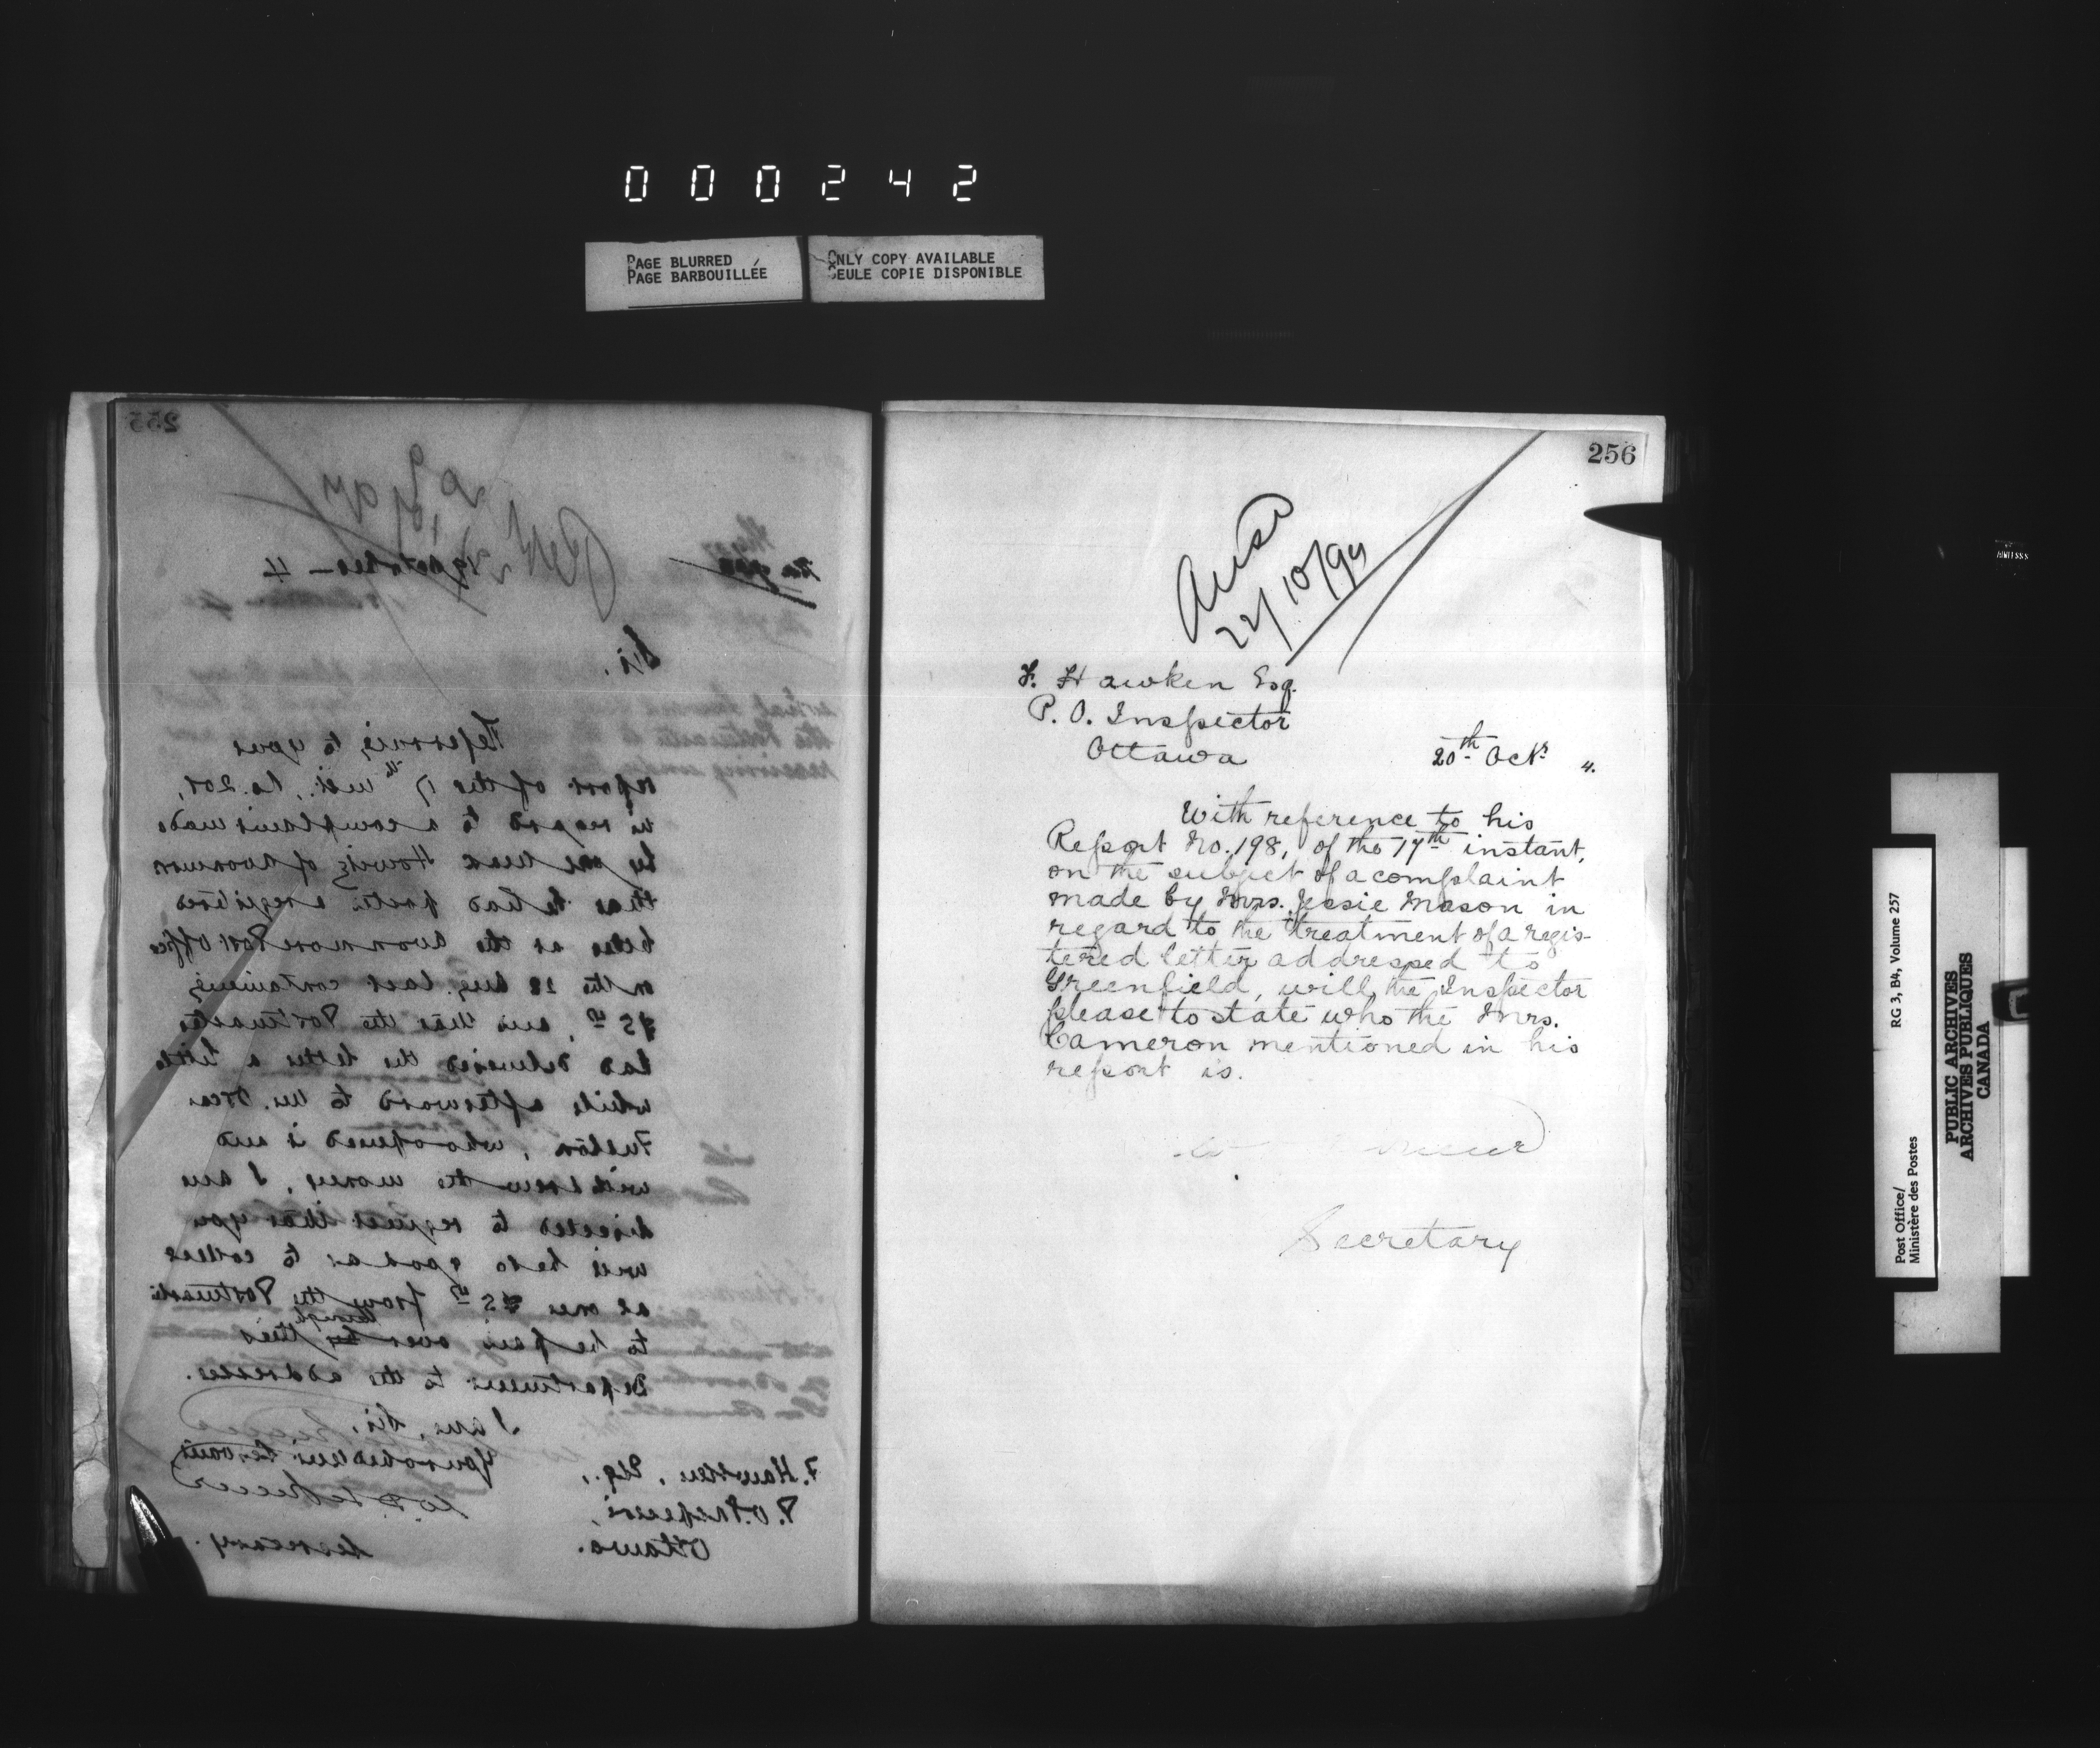 000242
PAGE BLURRED
PAGE BARBOUILLÉE
ONLY COPY AVAILABLE
SEULE COPIE DISPONIBLE
255
19 October 4
Sir,
Referring to your
report of the 17th inst., No. 201,
in regard to a complaint made
by one Howitz of Avonmore
that he had posted a registered
letter at the Avonmore Post Office
on the 28 Aug. last containing
and that the Postmaster
had delivered the letter a little
while afterward to Mr.
Fulton, who opened it and
withdrew the money, I am
directed to request that you
will be so good as to collect
at once from the Postmaster
to be paid over through this
Department to the addressee.
I am, Sir,
Your obedient Servant
F. Hawken, Esq.,
P.O. Inspector,
Ottawa.
Secretary.
256
Ansd
22/10/94
F. Hawken Esq.
P. O. Inspector
Ottawa
20th Octr 4.
With reference to his
Report No. 198, of the 17th instant,
on the subject of a complaint
made by Mrs. Jessie Mason in
regard to the treatment of a regis-
tered letter addressed to
Greenfield, will the Inspector
please to state who the Mrs.
Cameron mentioned in his
report is.
Secretary
RG 3, B4, Volume 257
Post Office/
Ministère des Postes
PUBLIC ARCHIVES
ARCHIVES PUBLIQUES
CANADA